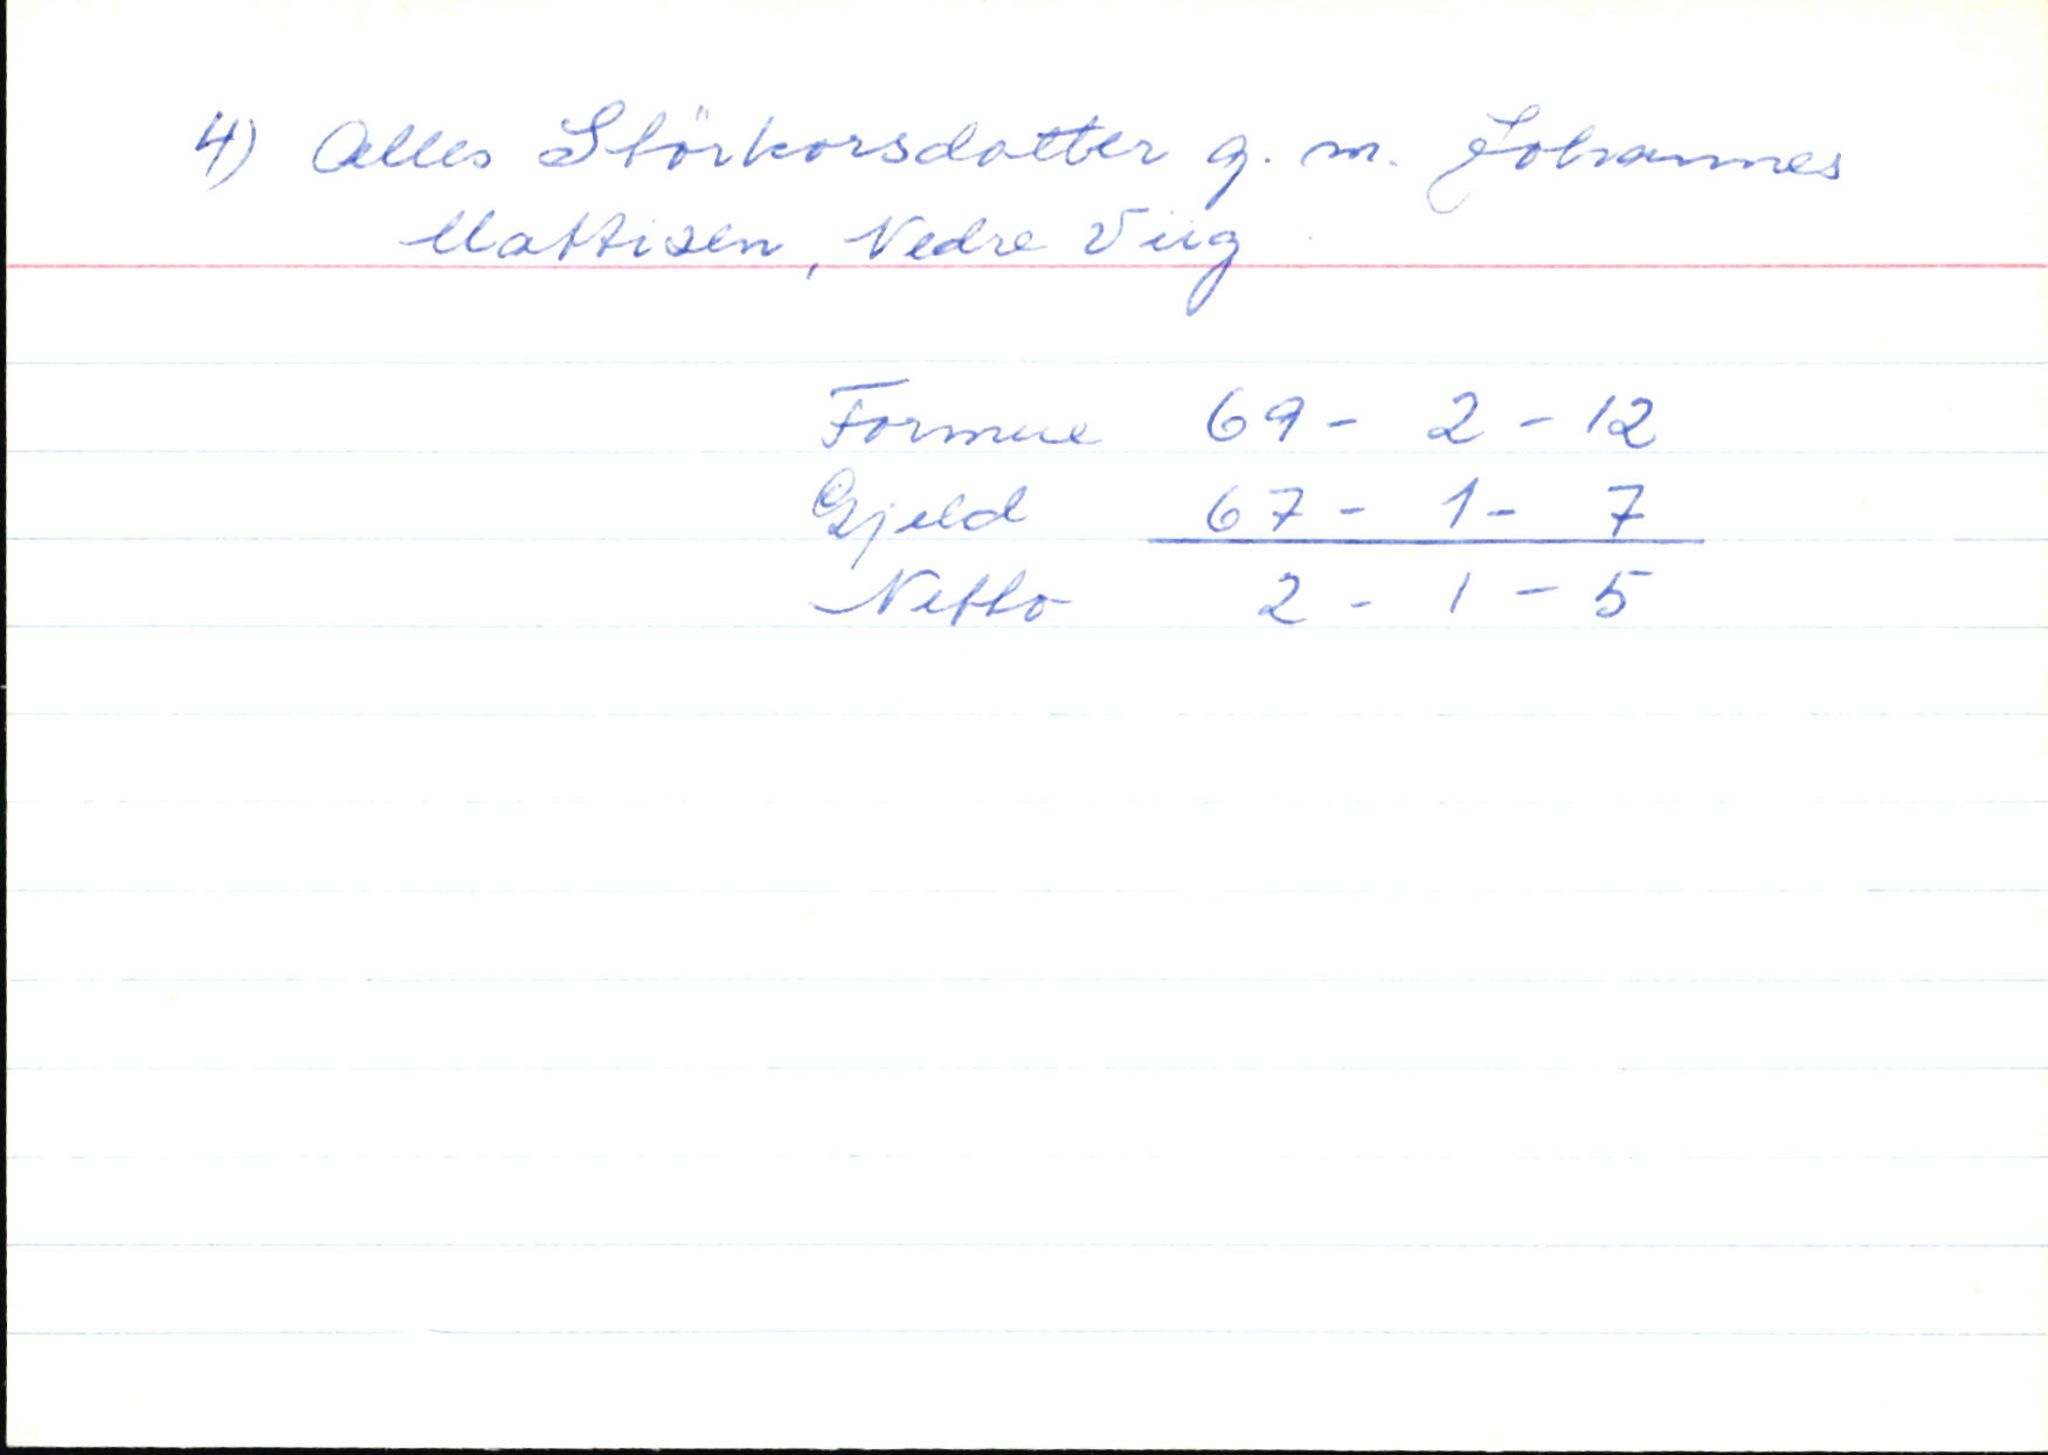 4) Alles Störkorsdatter g. m. Johannes
Mattisen, Nedre Viig
Formue 69 - 2 - 12
Gjeld 67 - 1 - 7
Netto 2 - 1 - 5